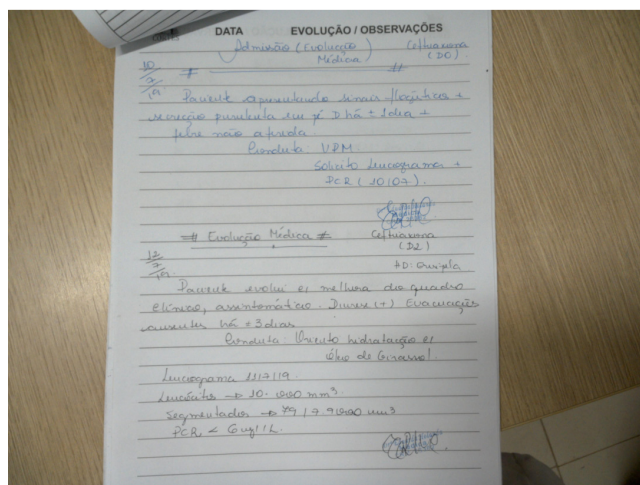 DATA EVOLUÇÃO / OBSERVAÇÕES
Admissão (Evolução Médica) Ceftriaxona (D0).
10/7/19
Paciente apresentando sinais flogísticos +
secreção purulenta em pé D há ± 1dia +
febre não aferida.
Conduta: VPM
Solicito Leucograma +
PCR (10/07).
# Evolução Médica # Ceftriaxona
(D2)
12/7/19
HD: Erisipela
Paciente evolui c/ melhora do quadro
clínico, assintomático. Diurese (+) Evacuações
ausentes há ± 3 dias
Conduta: Oriento hidratação c/
óleo de Girassol.
Leucograma 11/7/19.
Leucócitos → 10.000 mm³.
Segmentados → 79 / 7.900 mm³
PCR < 6ug/L.